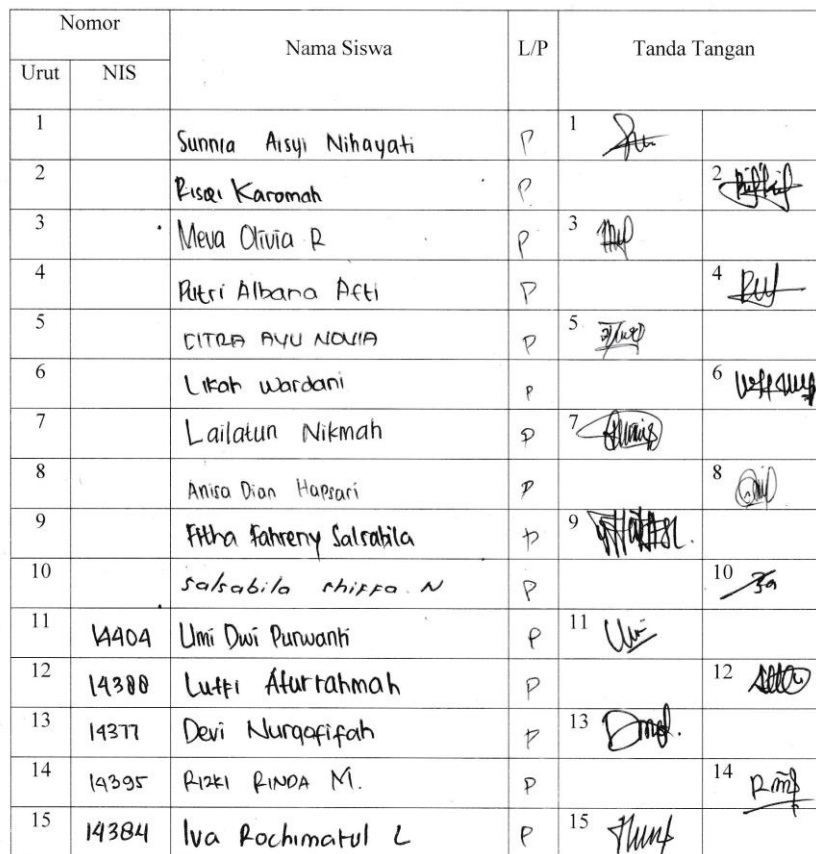 Nomor Nama Siswa L/P Tanda Tangan
Urut NIS
1 Sunnia Aisyi Nihayati P 1
2 Risqi Karomah P 2
3 Meva Olivia R P 3
4 Putri Albana Afti P 4
5 CITRA AYU NOVIA P 5
6 Likah Wardani P 6
7 Lailatun Nikmah P 7
8 Anisa Dian Hapsari P 8
9 Fahreny Salsabila P 9
10 salsabila shiffa N P 10
11 14404 Umi Dwi Purwanti P 11
12 14388 Lutfi Afurrahmah P 12
13 14377 Devi Nurqofifah P 13
14 14395 RIZKI RINDA M. P 14
15 14384 Iva Rochimatul L P 15